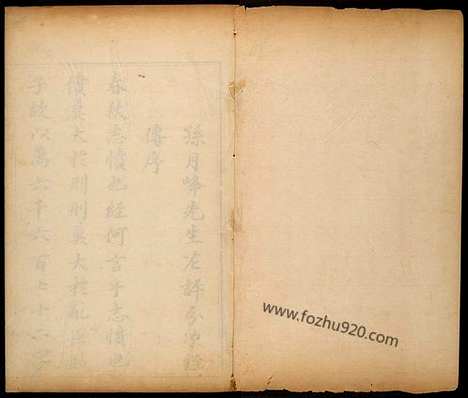 孫月峰先生左評分次經
傳序
春秋志慎也經何言乎志慎也
慎莫大於刑刑莫大於亂
子故以萬六千六百七十六字
www.fozhu920.com